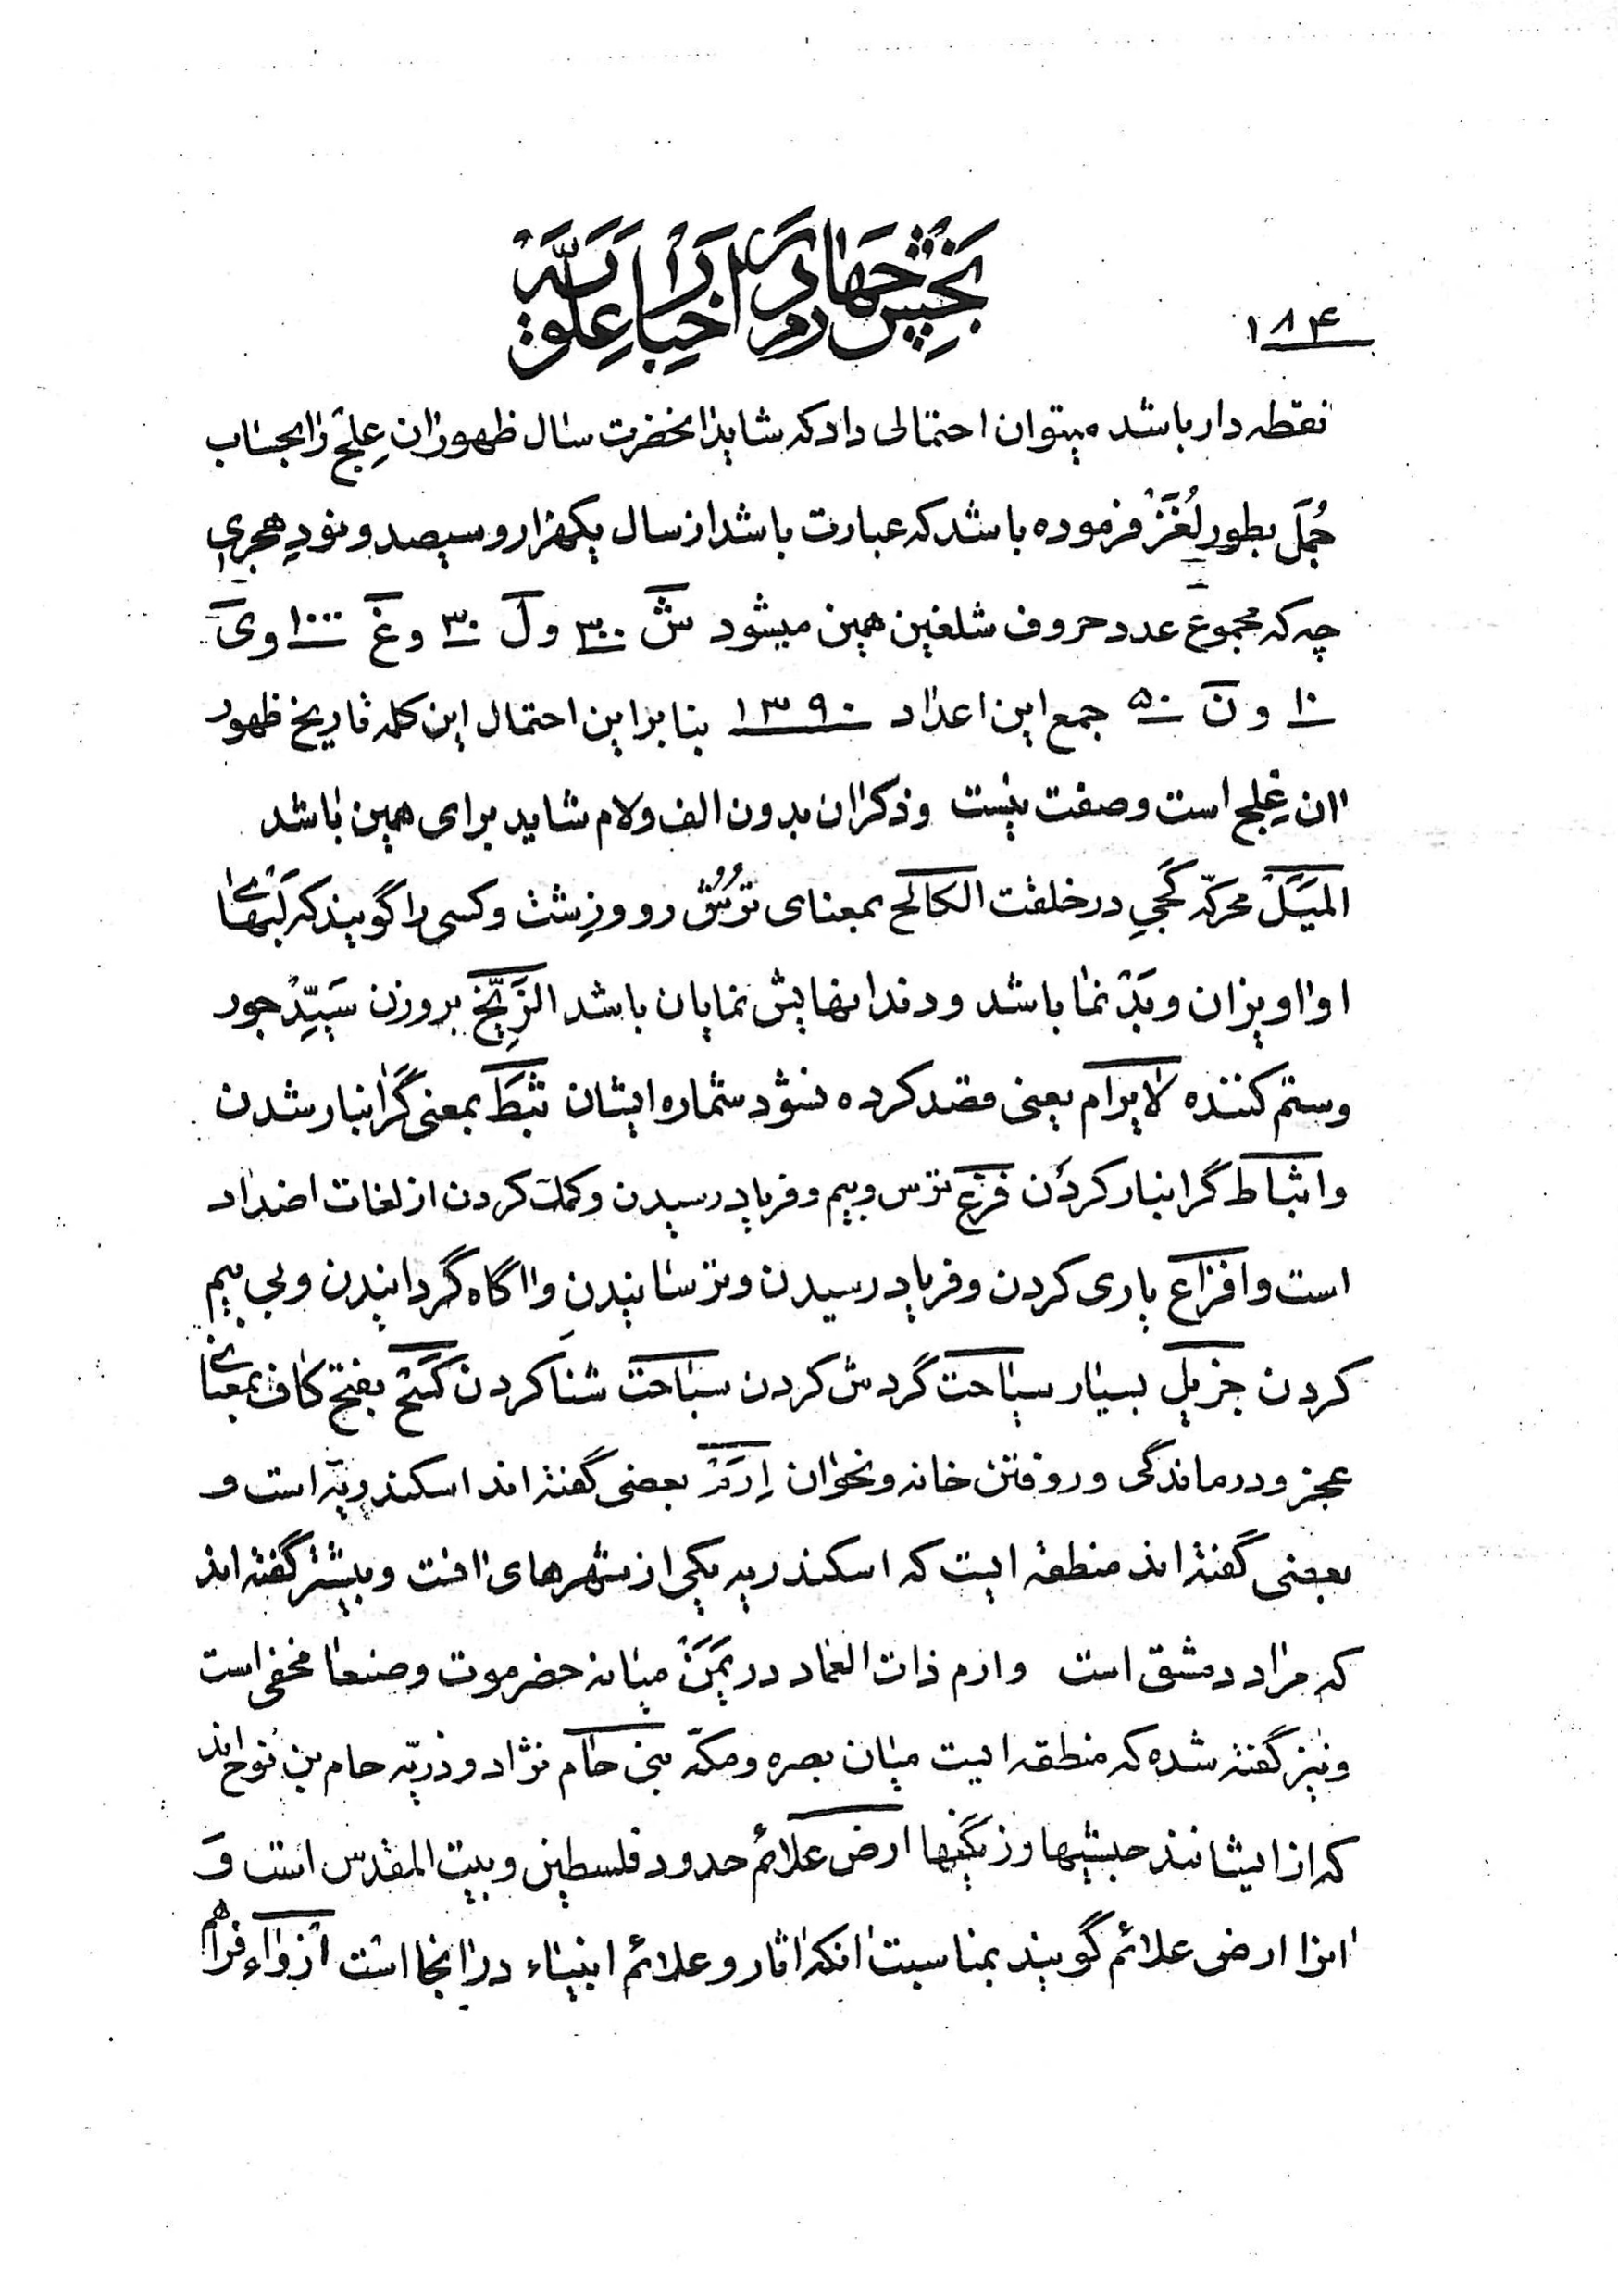 ۱۸۴
بخش چهارم در اخبار علویه
نقطه دار باشد میتوان احتمالی داد که شاید انحضرت سال ظهور ان عِلج را بحساب
جُمَل بطور لُغَز فرموده باشد که عبارت باشد از سال یکهزار و سیصد و نودِ هجری
چه که مجموع عدد حروف شلغین همین میشود ش ۳۰۰ و ل ۳۰ و غ ۱۰۰۰ و ی
۱۰ و ن ۵۰ جمع این اعداد ۱۳۹۰ بنا براین احتمال این کلمه تاریخ ظهور
ان عِلج است وصفت نیست وذکر ان بدون الف ولام شاید برای همین باشد
المَیَل محرکّه کَجیِ در خلقت الکالح بمعنای تُرُش رو وزِشت وکسی را گویند که لَبهای
او اویزان وبَدْ نما باشد ودندانهایش نمایان باشد الزَیِّخ بروزن سَیِّدْ جور
وستم کننده لا یرام یعنی قصد کرده نشود شماره ایشان ثبَطَ بمعنی گرانبار شدن
واثباط گرانبار کردن فزع ترس وبیم وفریاد رسیدن وکمک کردن از لغات اضداد
است وافزاع یاری کردن وفریاد رسیدن وترسانیدن واگاه گردانیدن وبی بیم
کردن جزیل بسیار سیاحت گردش کردن سباحت شنا کردن کَسَح بفتح کاف بمعنای
عجز ودرماندگی وروفتن خانه ونحوان اِرَم بعضی گفته اند اسکندریه است و
بعضی گفته اند منطقه ایست که اسکندریه یکی از شهرهای انست وبیشتر گفته اند
که مراد دمشق است وارم ذات العماد در یَمَنْ میانه حضرموت وصنعا مخفی است
ونیز گفته شده که منطقه ایست میان بصره ومکّه بنی حام نژاد وذریّه حام بن نوح اند
که از ایشانند حبشیها وزنگیها ارض علائم حدود فلسطین وبیت المقدس است و
انرا ارض علائم گویند بمناسبت انکه اثار وعلائم انبیاء در انجا است ازواء فراهم